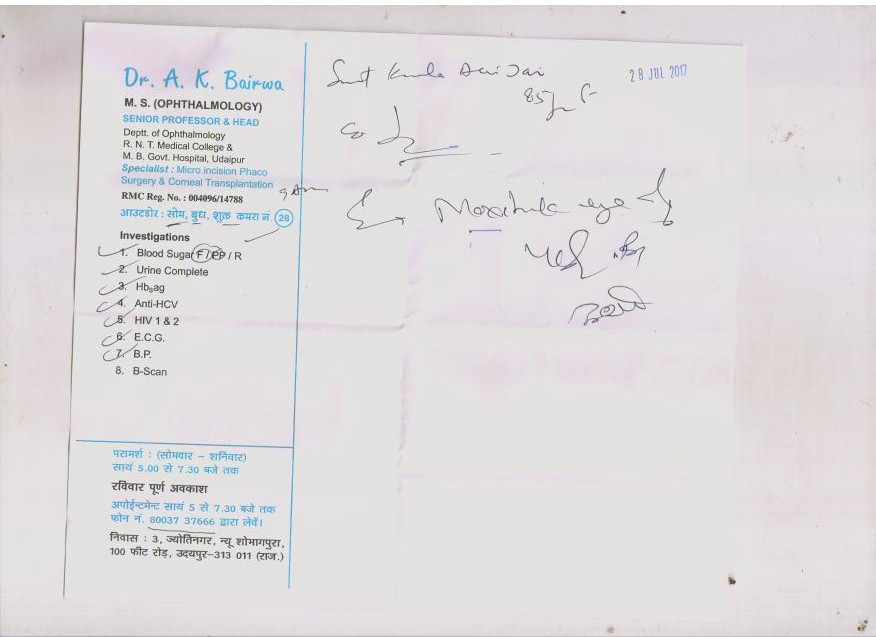 Dr. A. K. Bairwa
M. S. (OPHTHALMOLOGY)
SENIOR PROFESSOR & HEAD
Deptt. of Ophthalmology
R. N. T. Medical College &
M. B. Govt. Hospital, Udaipur
Specialist : Micro incision Phaco
Surgery & Corneal Transplantation
RMC Reg. No. : 004096/14788
आउटडोर : सोम, बुध, शुक्र कमरा नं. 28
Investigations
1. Blood Sugar F / PP / R
2. Urine Complete
3. Hbsag
4. Anti-HCV
5. HIV 1 & 2
6. E.C.G.
7. B.P.
8. B-Scan
परामर्श : (सोमवार – शनिवार)
सायं 5.00 से 7.30 बजे तक
रविवार पूर्ण अवकाश
अपोईन्टमेन्ट सायं 5 से 7.30 बजे तक
फोन नं. 80037 37666 द्वारा लेवें।
निवास : 3, ज्योतिनगर, न्यू शोभागपुरा,
100 फीट रोड़, उदयपुर–313 011 (राज.)
28 JUL 2017
85
eye